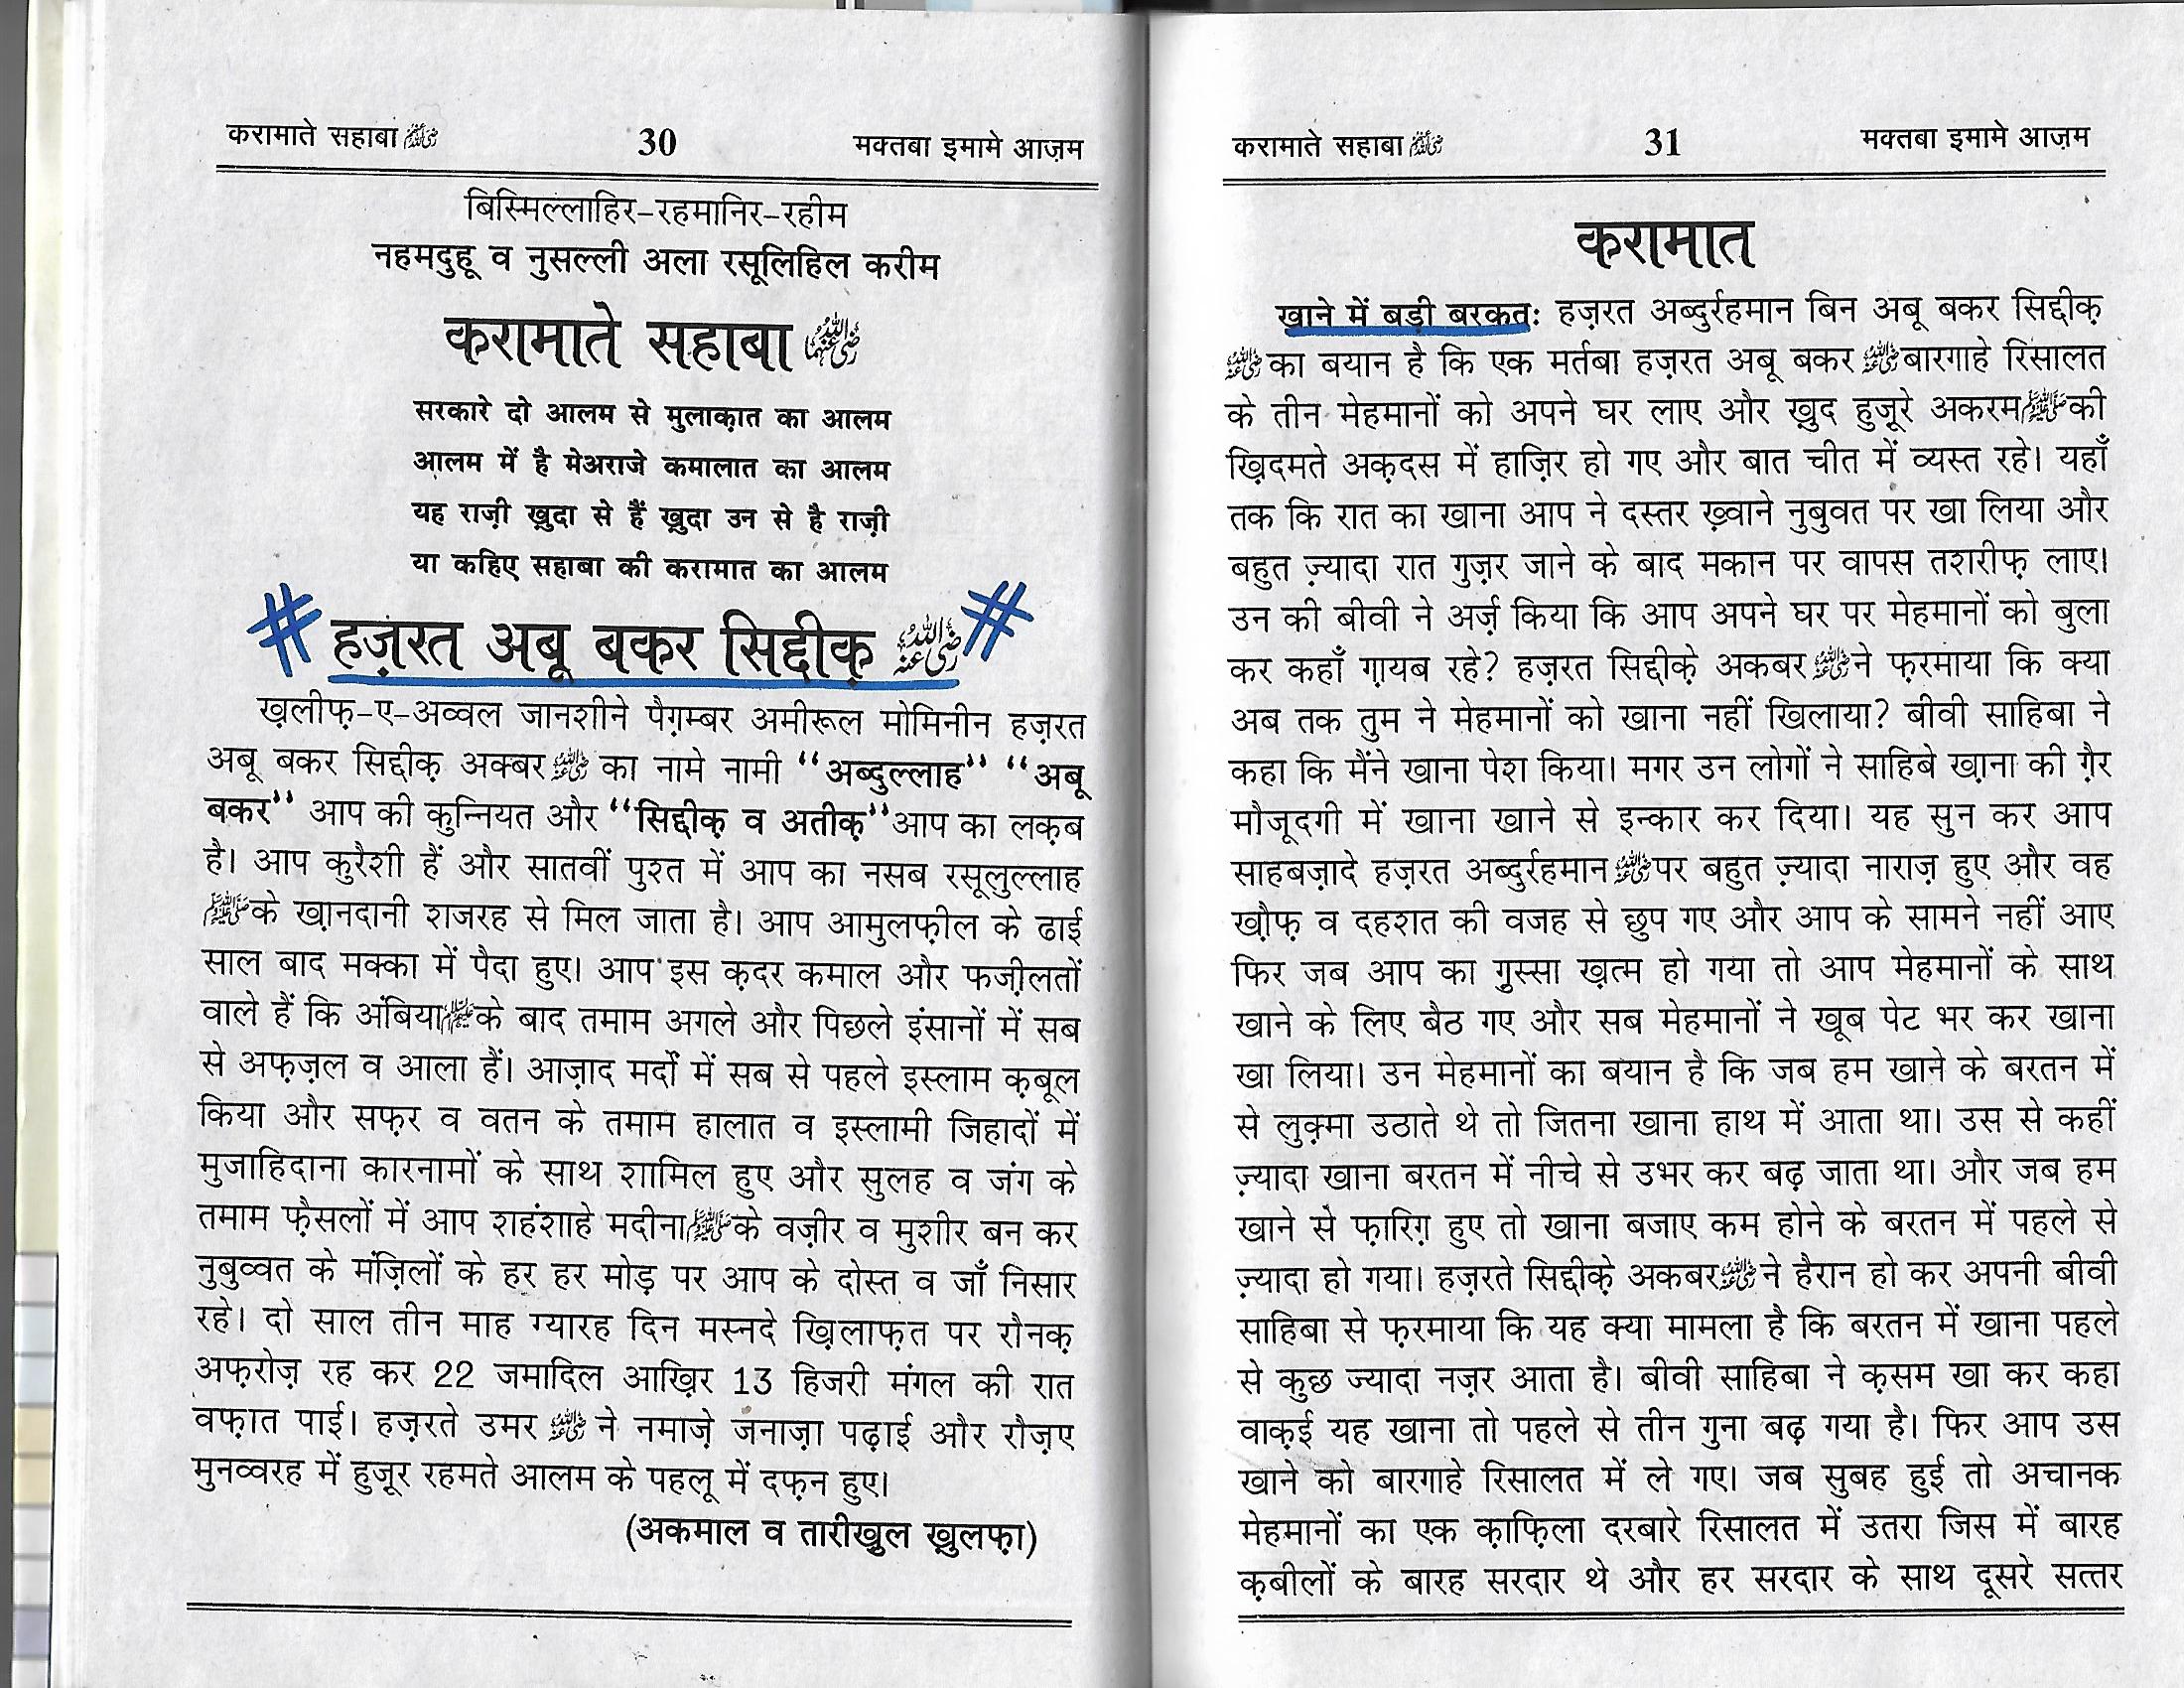 करामाते सहाबा رضي الله عنهم 30 मक्तबा इमामे आज़म
बिस्मिल्लाहिर-रहमानिर-रहीम
नहमदुहू व नुसल्ली अला रसूलिहिल करीम
करामाते सहाबा
सरकारे दो आलम से मुलाक़ात का आलम
आलम में है मेअराजे कमालात का आलम
यह राज़ी ख़ुदा से हैं ख़ुदा उन से है राज़ी
या कहिए सहाबा की करामात का आलम
# हज़रत अबू बकर सिद्दीक़ رضي الله عنه #
ख़लीफ़-ए-अव्वल जानशीने पैग़म्बर अमीरूल मोमिनीन हज़रत
अबू बकर सिद्दीक़ अक्बर رضي الله عنه का नामे नामी “अब्दुल्लाह” “अबू
बकर” आप की कुन्नियत और “सिद्दीक़ व अतीक़” आप का लक़ब
है। आप कुरैशी हैं और सातवीं पुश्त में आप का नसब रसूलुल्लाह
ﷺ के ख़ानदानी शजरह से मिल जाता है। आप आमुलफ़ील के ढाई
साल बाद मक्का में पैदा हुए। आप इस क़दर कमाल और फज़ीलतों
वाले हैं कि अंबिया के बाद तमाम अगले और पिछले इंसानों में सब
से अफ़ज़ल व आला हैं। आज़ाद मर्दों में सब से पहले इस्लाम क़बूल
किया और सफ़र व वतन के तमाम हालात व इस्लामी जिहादों में
मुजाहिदाना कारनामों के साथ शामिल हुए और सुलह व जंग के
तमाम फ़ैसलों में आप शहंशाहे मदीना ﷺ के वज़ीर व मुशीर बन कर
नुबुव्वत के मंज़िलों के हर हर मोड़ पर आप के दोस्त व जाँ निसार
रहे। दो साल तीन माह ग्यारह दिन मस्नदे ख़िलाफ़त पर रौनक़
अफ़रोज़ रह कर 22 जमादिल आख़िर 13 हिजरी मंगल की रात
वफ़ात पाई। हज़रते उमर رضي الله عنه ने नमाज़े जनाज़ा पढ़ाई और रौज़ए
मुनव्वरह में हुज़ूर रहमते आलम के पहलू में दफ़न हुए।
(अकमाल व तारीख़ुल ख़ुलफ़ा)
करामाते सहाबा رضي الله عنهم 31 मक्तबा इमामे आज़म
करामात
खाने में बड़ी बरकत: हज़रत अब्दुर्रहमान बिन अबू बकर सिद्दीक़
رضي الله عنه का बयान है कि एक मर्तबा हज़रत अबू बकर رضي الله عنه बारगाहे रिसालत
के तीन मेहमानों को अपने घर लाए और ख़ुद हुज़ूरे अकरम ﷺ की
ख़िदमते अक़दस में हाज़िर हो गए और बात चीत में व्यस्त रहे। यहाँ
तक कि रात का खाना आप ने दस्तर ख़्वाने नुबुवत पर खा लिया और
बहुत ज़्यादा रात गुज़र जाने के बाद मकान पर वापस तशरीफ़ लाए।
उन की बीवी ने अर्ज़ किया कि आप अपने घर पर मेहमानों को बुला
कर कहाँ ग़ायब रहे? हज़रत सिद्दीक़े अकबर رضي الله عنه ने फ़रमाया कि क्या
अब तक तुम ने मेहमानों को खाना नहीं खिलाया? बीवी साहिबा ने
कहा कि मैंने खाना पेश किया। मगर उन लोगों ने साहिबे ख़ाना की ग़ैर
मौजूदगी में खाना खाने से इन्कार कर दिया। यह सुन कर आप
साहबज़ादे हज़रत अब्दुर्रहमान رضي الله عنه पर बहुत ज़्यादा नाराज़ हुए और वह
ख़ौफ़ व दहशत की वजह से छुप गए और आप के सामने नहीं आए
फिर जब आप का ग़ुस्सा ख़त्म हो गया तो आप मेहमानों के साथ
खाने के लिए बैठ गए और सब मेहमानों ने खूब पेट भर कर खाना
खा लिया। उन मेहमानों का बयान है कि जब हम खाने के बरतन में
से लुक़्मा उठाते थे तो जितना खाना हाथ में आता था। उस से कहीं
ज़्यादा खाना बरतन में नीचे से उभर कर बढ़ जाता था। और जब हम
खाने से फ़ारिग़ हुए तो खाना बजाए कम होने के बरतन में पहले से
ज़्यादा हो गया। हज़रते सिद्दीक़े अकबर رضي الله عنه ने हैरान हो कर अपनी बीवी
साहिबा से फ़रमाया कि यह क्या मामला है कि बरतन में खाना पहले
से कुछ ज्यादा नज़र आता है। बीवी साहिबा ने क़सम खा कर कहा
वाक़ई यह खाना तो पहले से तीन गुना बढ़ गया है। फिर आप उस
खाने को बारगाहे रिसालत में ले गए। जब सुबह हुई तो अचानक
मेहमानों का एक क़ाफ़िला दरबारे रिसालत में उतरा जिस में बारह
क़बीलों के बारह सरदार थे और हर सरदार के साथ दूसरे सत्तर